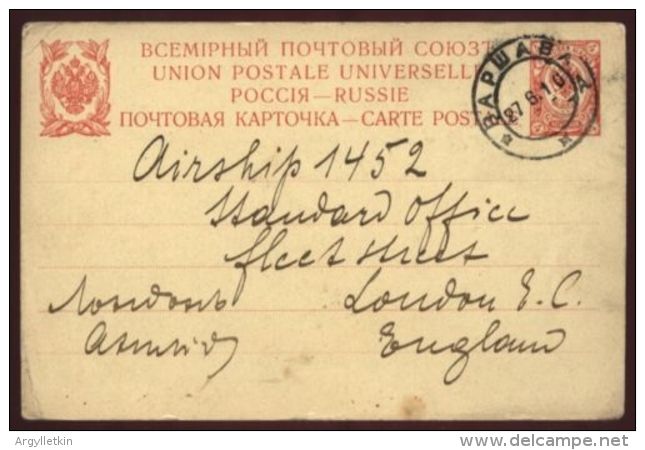 ВСЕМІРНЫЙ ПОЧТОВЫЙ СОЮЗЪ
UNION POSTALE UNIVERSELLE
РОССІЯ—RUSSIE
ПОЧТОВАЯ КАРТОЧКА—CARTE POSTALE
ВАРШАВА
27 8 10
Airship 1452
Standard Office
fleet street
Лондонъ London E.C.
England
Argylletkin
© delcampe.net